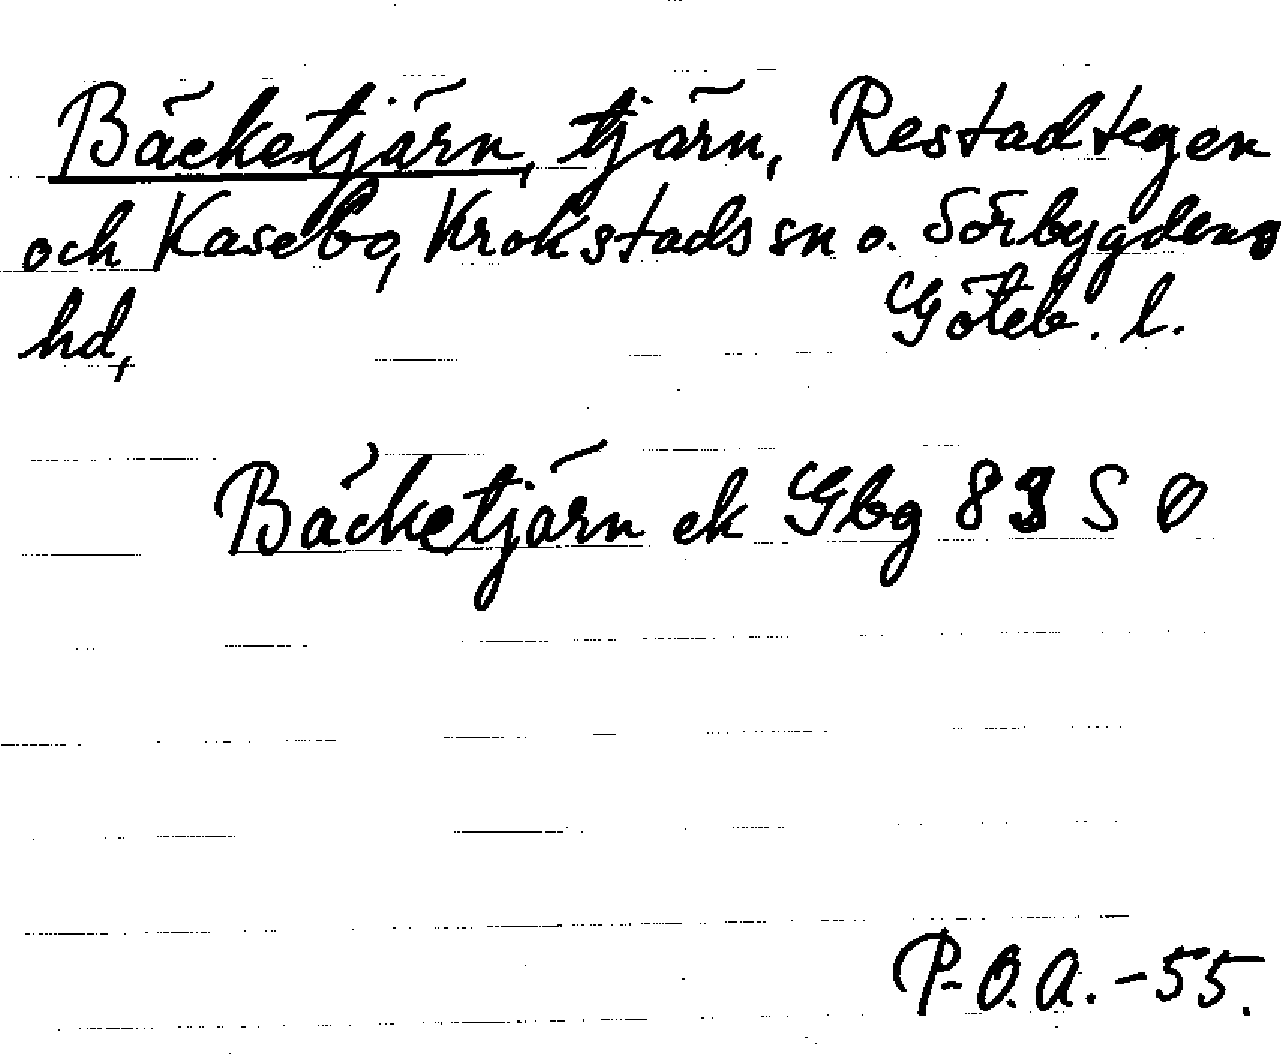 Bäcketjärn, tjärn, Restadtegen
och Kasebo, Krokstads sn o. Sörbygdens
hd, Göteb. l.
Bäcketjärn ek Gbg 83 S O
P-O.A. -55.